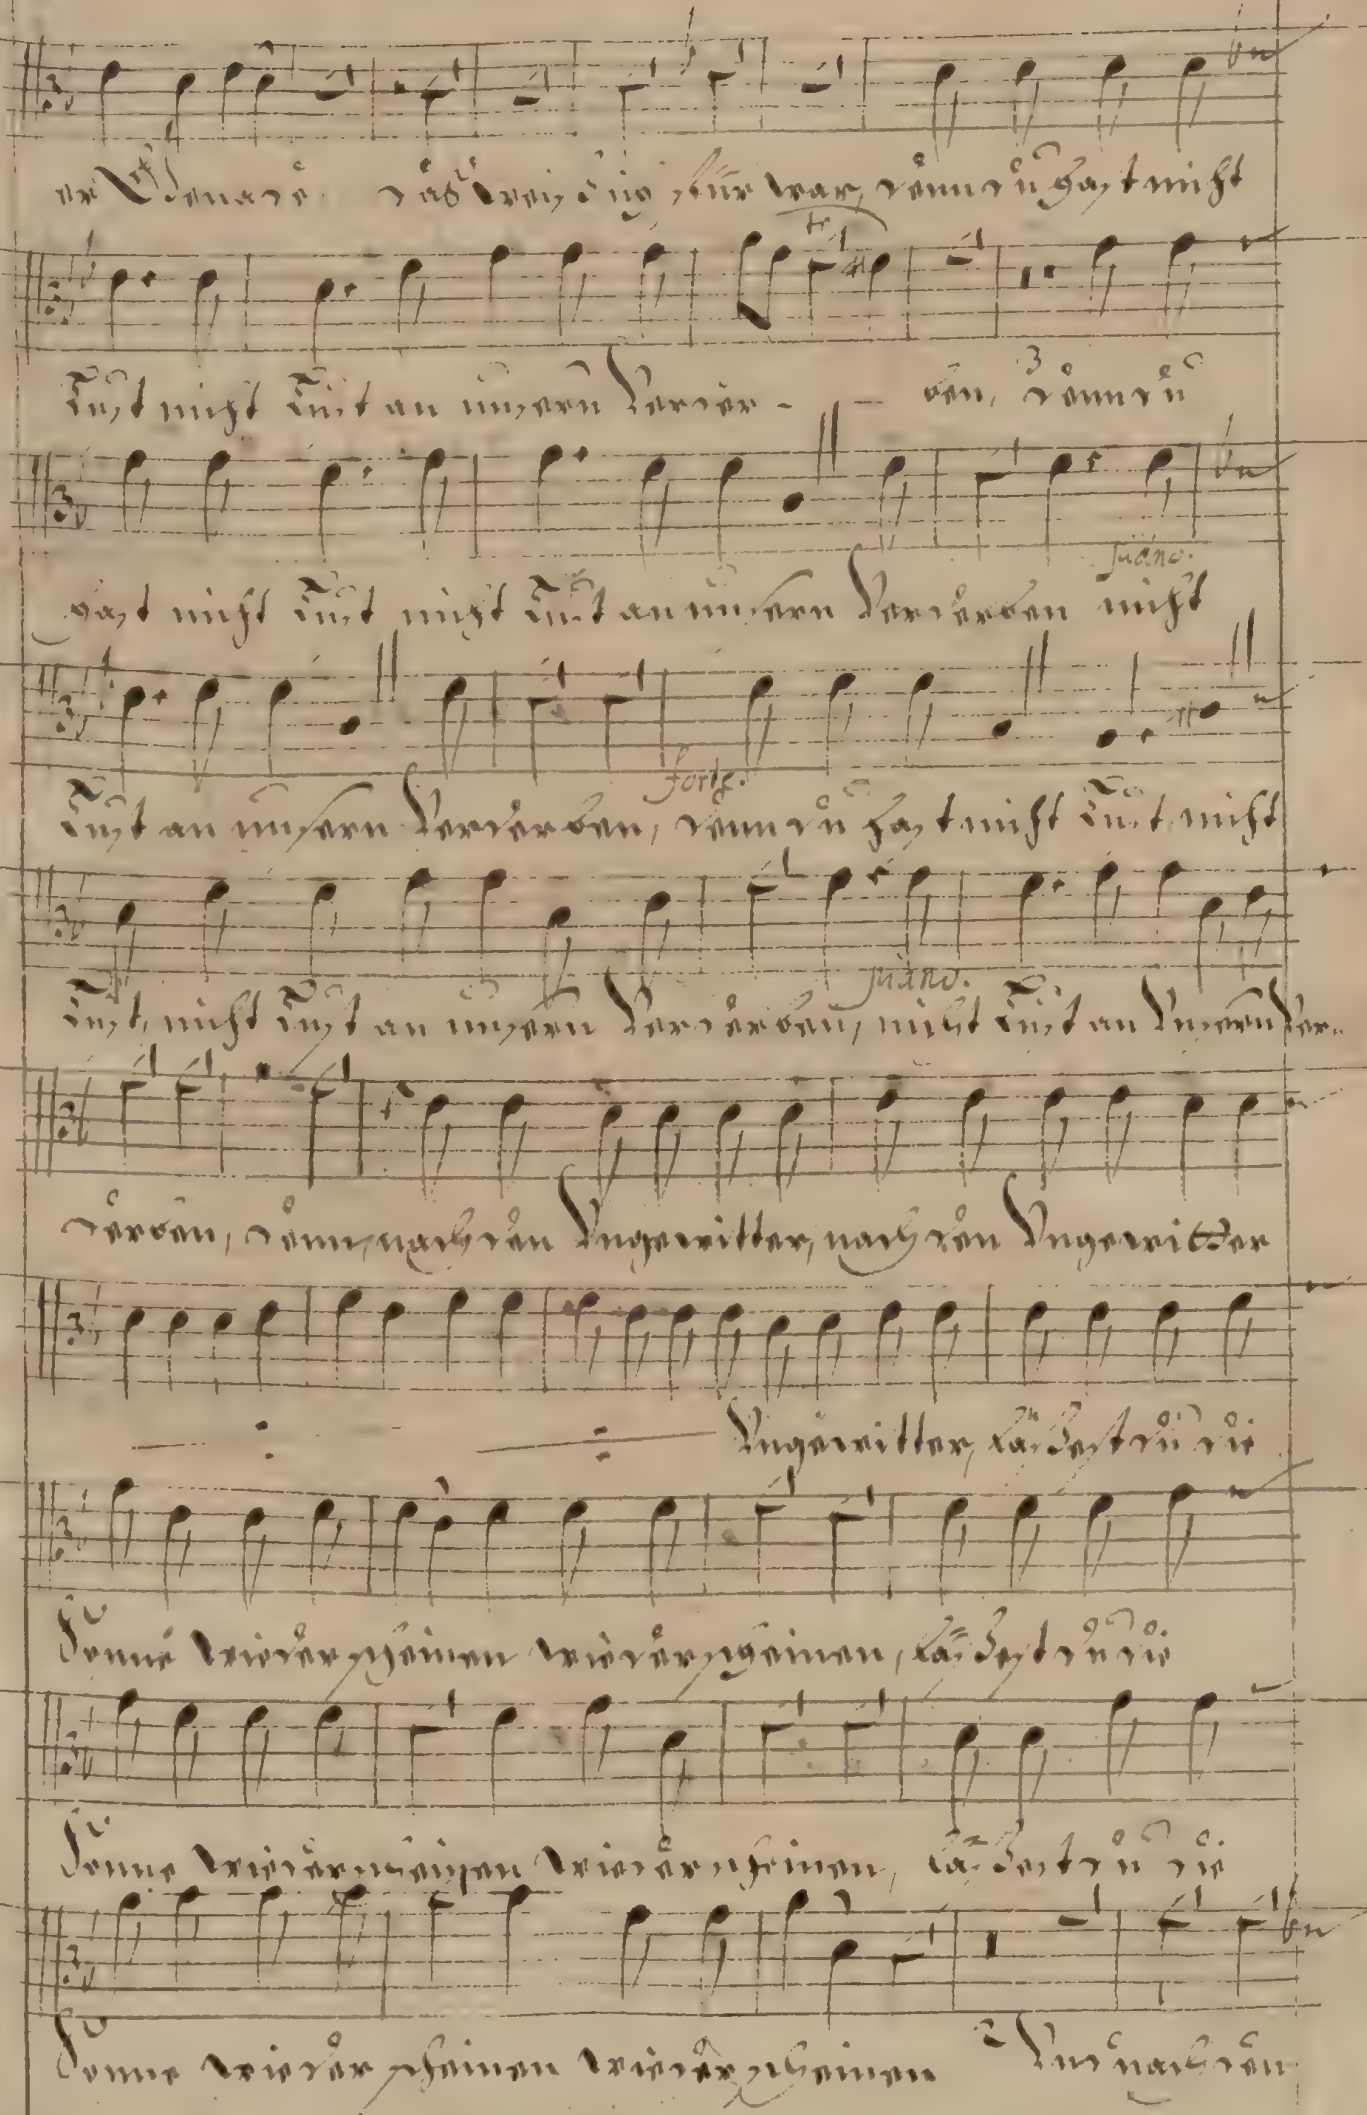 das weiß ich fürwar, denn du hast nicht
Lust nicht Lust an unsern Verder - - ben, denn du
hast nicht Lust nicht Lust an unsern Verderben nicht
piano.
Lust an unsern Verderben, denn du hast nicht Lust nicht
forte.
Lust, nicht Lust an unsern Verderben, nicht Lust an Unsern Ver-
piano.
derben, denn nach den Ungewitter, nach den Ungewitter
Ungewitter, läßest du die
Sonne wieder scheinen wieder scheinen, läßest du die
Sonne wieder scheinen wieder scheinen, läßest du die
Sonne wieder scheinen wieder scheinen Und nach den